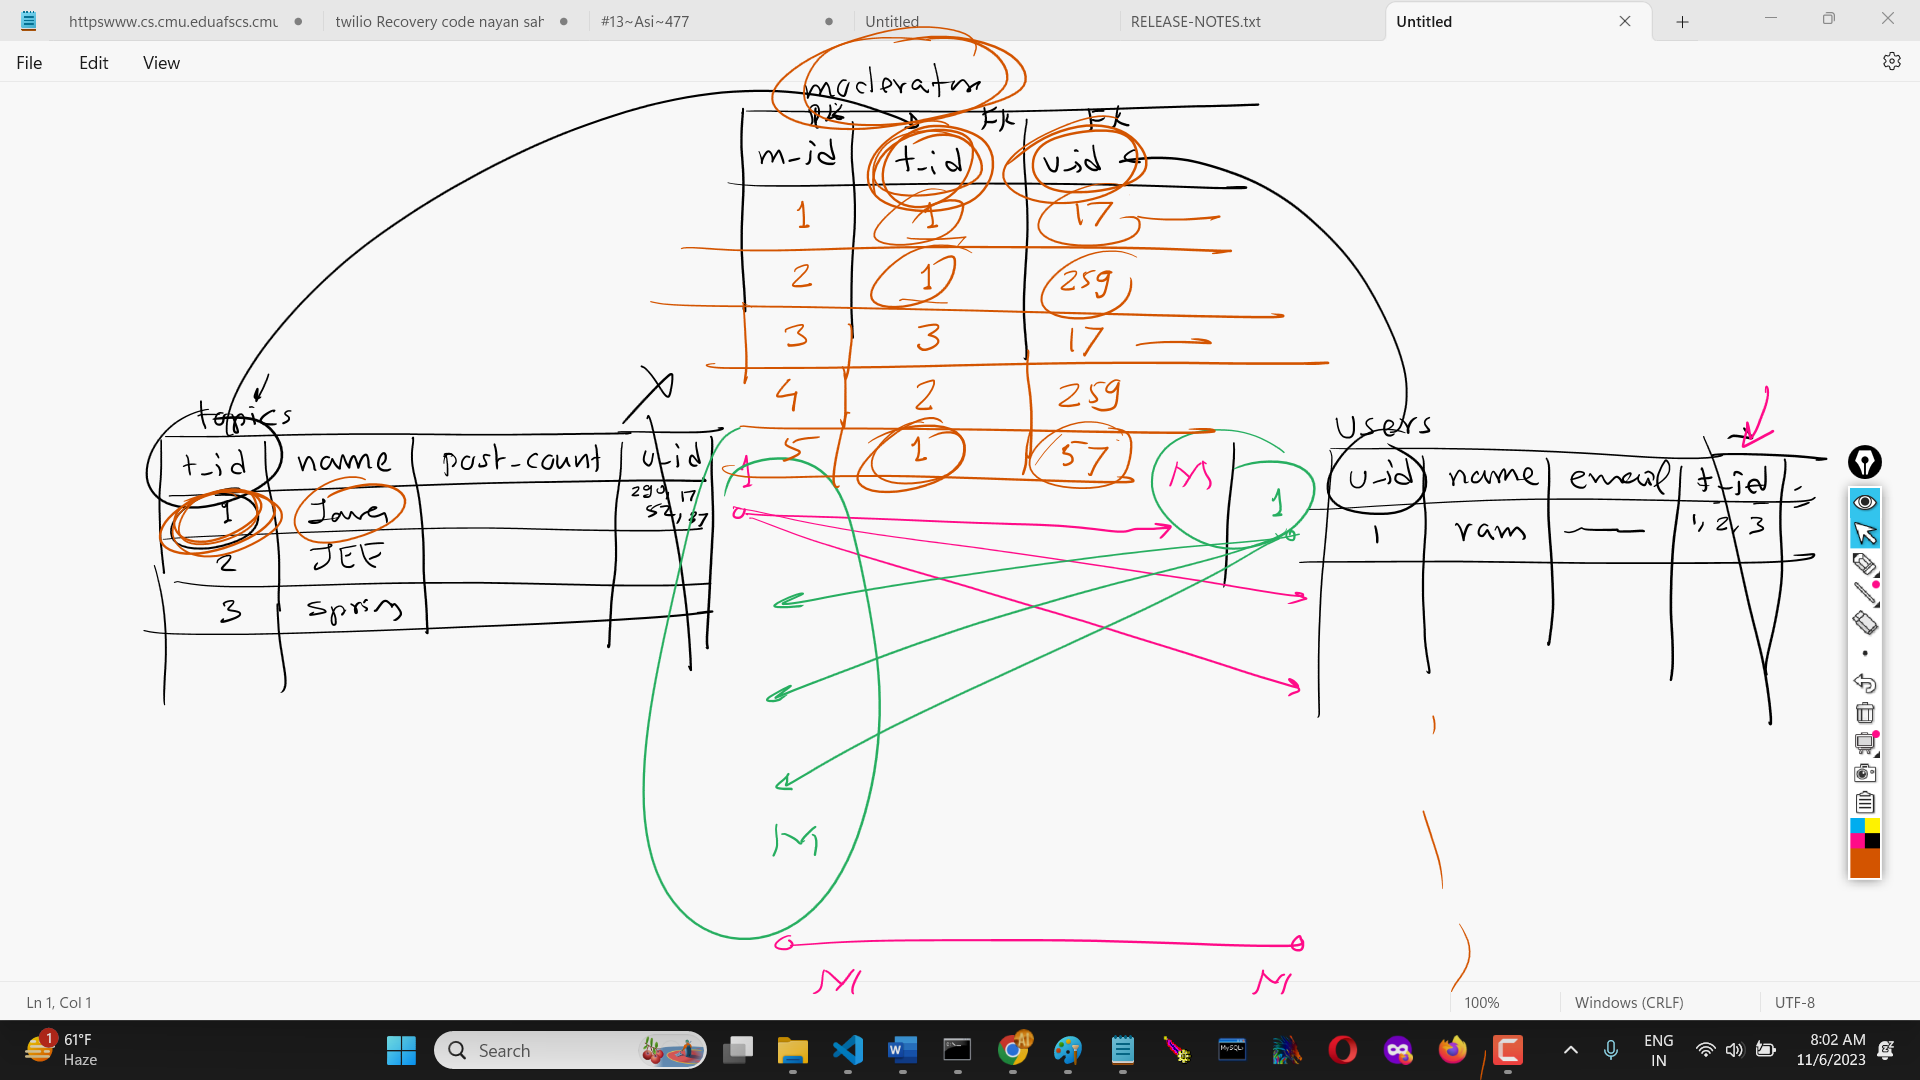 httpswww.cs.cmu.eduafscs.cmu
twilio Recovery code nayan sah
#13~Asi~477
Untitled
RELEASE-NOTES.txt
Untitled
File
Edit
View
moderator
PK
FK
FK
m-id
t-id
u-id
1
1
17
2
1
259
3
3
17
4
2
259
5
1
57
topics
t-id
name
post-count
u-id
1
Java
2
JEE
3
spring
1
M
1
users
u-id
name
email
t-id
1
ram
1, 2, 3
M
M
M
Ln 1, Col 1
100%
Windows (CRLF)
UTF-8
1
61°F
Haze
Search
ENG
IN
8:02 AM
11/6/2023